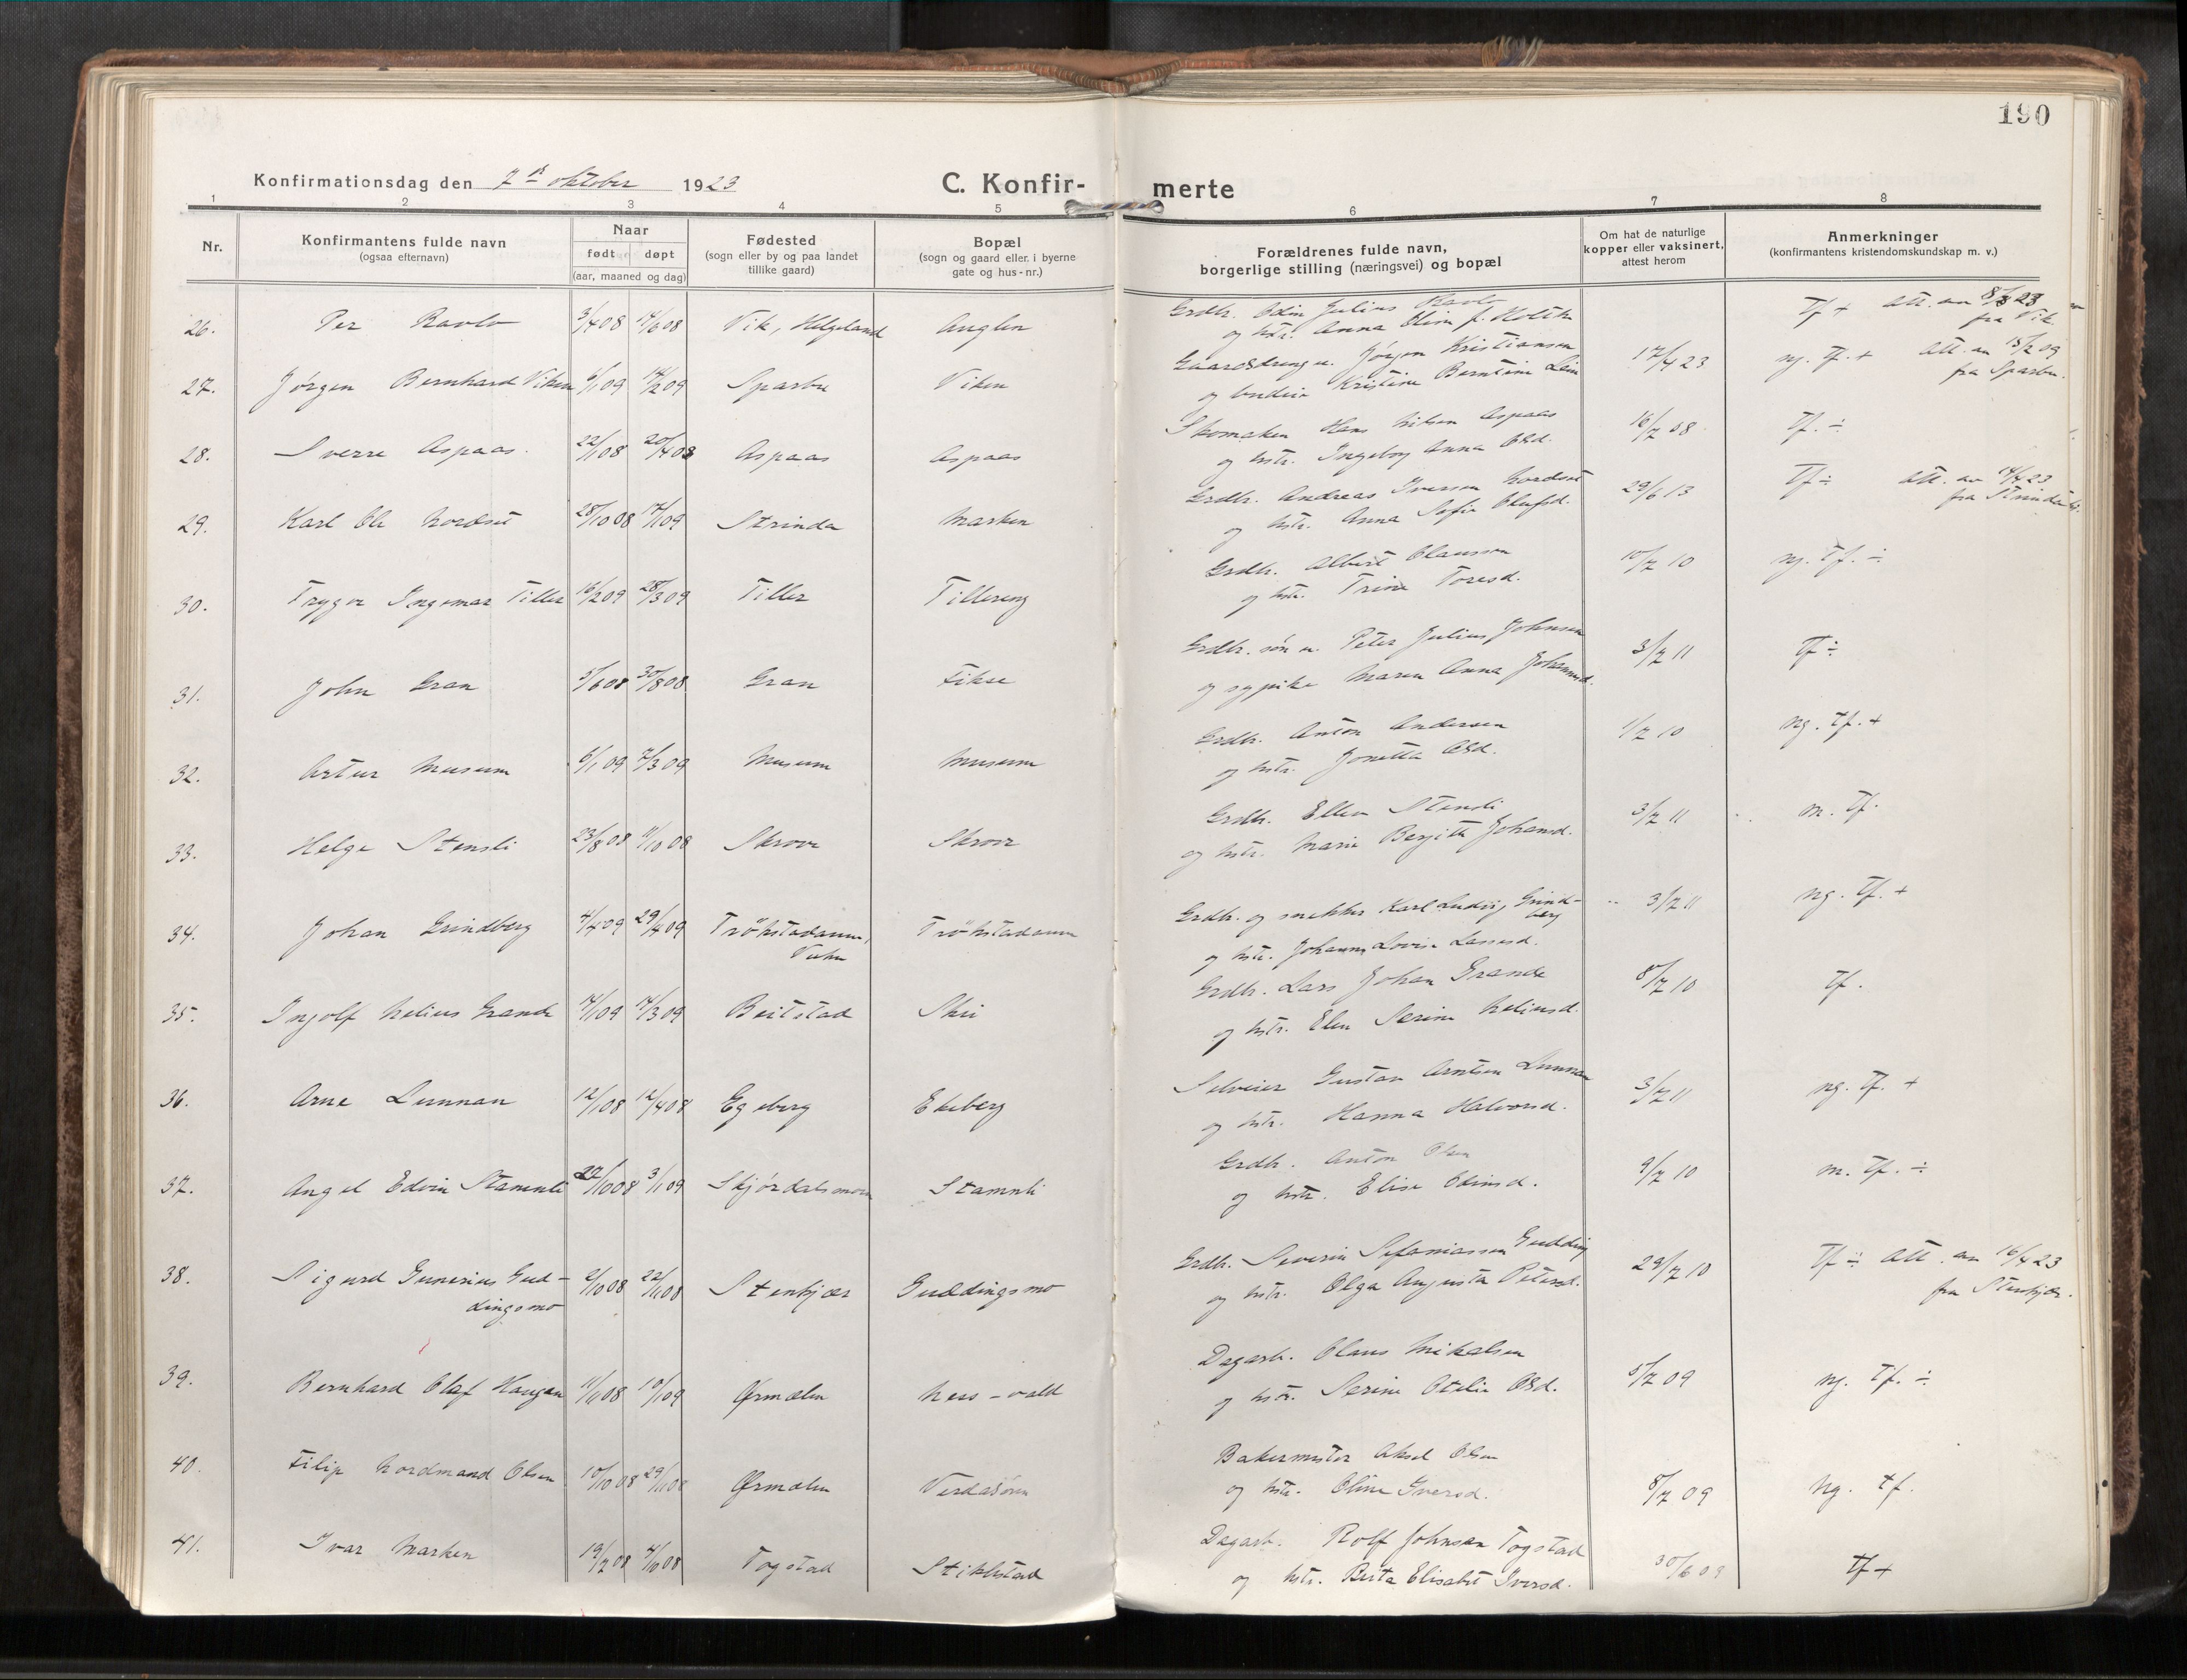 190
Konfirmationsdag den 7de oktober 1923 C. Konfir- merte
1 2 3 4 5 6 7 8
Nr.
Konfirmantens fulde navn
(ogsaa efternavn)
Naar
født døpt
(aar, maaned og dag)
Fødested
(sogn eller by og paa landet
tillike gaard)
Bopæl
(sogn og gaard eller, i byerne
gate og hus-nr.)
Forældrenes fulde navn,
borgerlige stilling (næringsvei) og bopæl
Om hat de naturlige
kopper eller vaksinert,
attest herom
Anmerkninger
(konfirmantens kristendomskundskap m. v.)
26. Per Ravlo 3/4 08 14/6 08 Vik, Helgeland Auglen
Grdbr. Odin Julius Ravlo
og hstr. Anna Olise f. Holth
Tf + att. av 8/8 23
fra Vik.
27. Jørgen Bernhard Viken 6/1 09 14/2 09 Sparbu Viken
Gaardsdreng u. Jørgen Kristiansen
og budeie Kristine Berntine Lein
17/4 23 ng. tf. + att. av 13/2 09
fra Sparbu.
28. Sverre Aspaas. 22/1 08 20/4 08 Aspaas Aspaas
Skomaker Hans Nilsen Aspaas
og hstr. Ingeborg Anna Olsd.
16/7 08 Tf. ÷
29. Karl Ole Nordset 28/10 08 17/1 09 Strinda Marken
Grdbr. Andreas Iversen Nordset
og hstr. Anna Sofie Olufsd.
29/6 13 Tf ÷ att. av 14/4 23
fra Strinda
30. Trygve Ingemar Tiller 16/2 09 28/3 09 Tiller Tillereng
Grdbr. Albert Olaussen
og hstr. Trine Toresd.
10/7 10 ng. tf. ÷
31. John Gran 5/6 08 30/8 08 Gran Fikse
Grdbr. søn u. Peter Julius Johnsen
og sypike Maren Anna Johannesd.
3/7 11 Tf ÷
32. Artur Musum 6/1 09 7/3 09 Musum Musum
Grdbr. Anton Andersen
og hstr. Jonetta Olsd.
1/7 10 ng. tf. +
33. Helge Stensli 23/8 08 11/10 08 Skrove Skrove
Grdbr. Ellev Stensli
og hstr. Marie Bergitte Johansd.
3/7 11 m. Tf.
34. Johan Grindberg 4/4 09 29/4 09 Trøhstadaunn, Trøhstadaunn
Vuku
Grdbr. og snekker Karl Ludvig Grind-
berg
og hstr. Johanna Lovise Lassesd.
3/7 11 ng. Tf. +
35. Ingolf Nelius Grande 14/1 09 14/3 09 Beitstad Skei
Grdbr. Lars Johan Grande
og hstr. Elen Serine Neliusd.
8/7 10 Tf.
36. Arne Lunnan 12/1 08 12/4 08 Egeberg Ekeberg
Selveier Gustav Arntsen Lunnan
og hstr. Hanna Halvorsd.
3/7 11 ng. Tf. +
37. Angel Edvin Stamnli 22/10 08 3/1 09 Skjørdalsmoen Stamnli
Grdbr. Anton Olsen
og hstr. Elise Edinsd.
9/7 10 m. Tf. ÷
38. Sigurd Gunerius Gud-
dingsmo 2/10 08 22/11 08 Stenkjær Guddingsmo
Grdbr. Severin Sefaniassen Gudding
og hstr. Olga Augusta Petersd.
29/7 10 Tf ÷ att. av 16/4 23
fra Stenkjær.
39. Bernhard Olaf Haugan 11/11 08 10/1 09 Ørmælen Ness-vald
Dagarb. Olaus Mikalsen
og hstr. Serine Otelie Olsd.
5/7 09 ng. Tf. ÷
40. Filip Nordmand Olsen 10/10 08 29/11 08 Ørmælen Verdasøren
Bakermester Aksel Olsen
og hstr. Oline Iversd.
8/7 09 Ng. tf.
41. Ivar Marken 19/7 08 4/10 08 Togstad Stiklestad
Dagarb. Rolf Johnsen Togstad
og hstr. Berta Elisabet Iversd.
30/6 09 Tf +